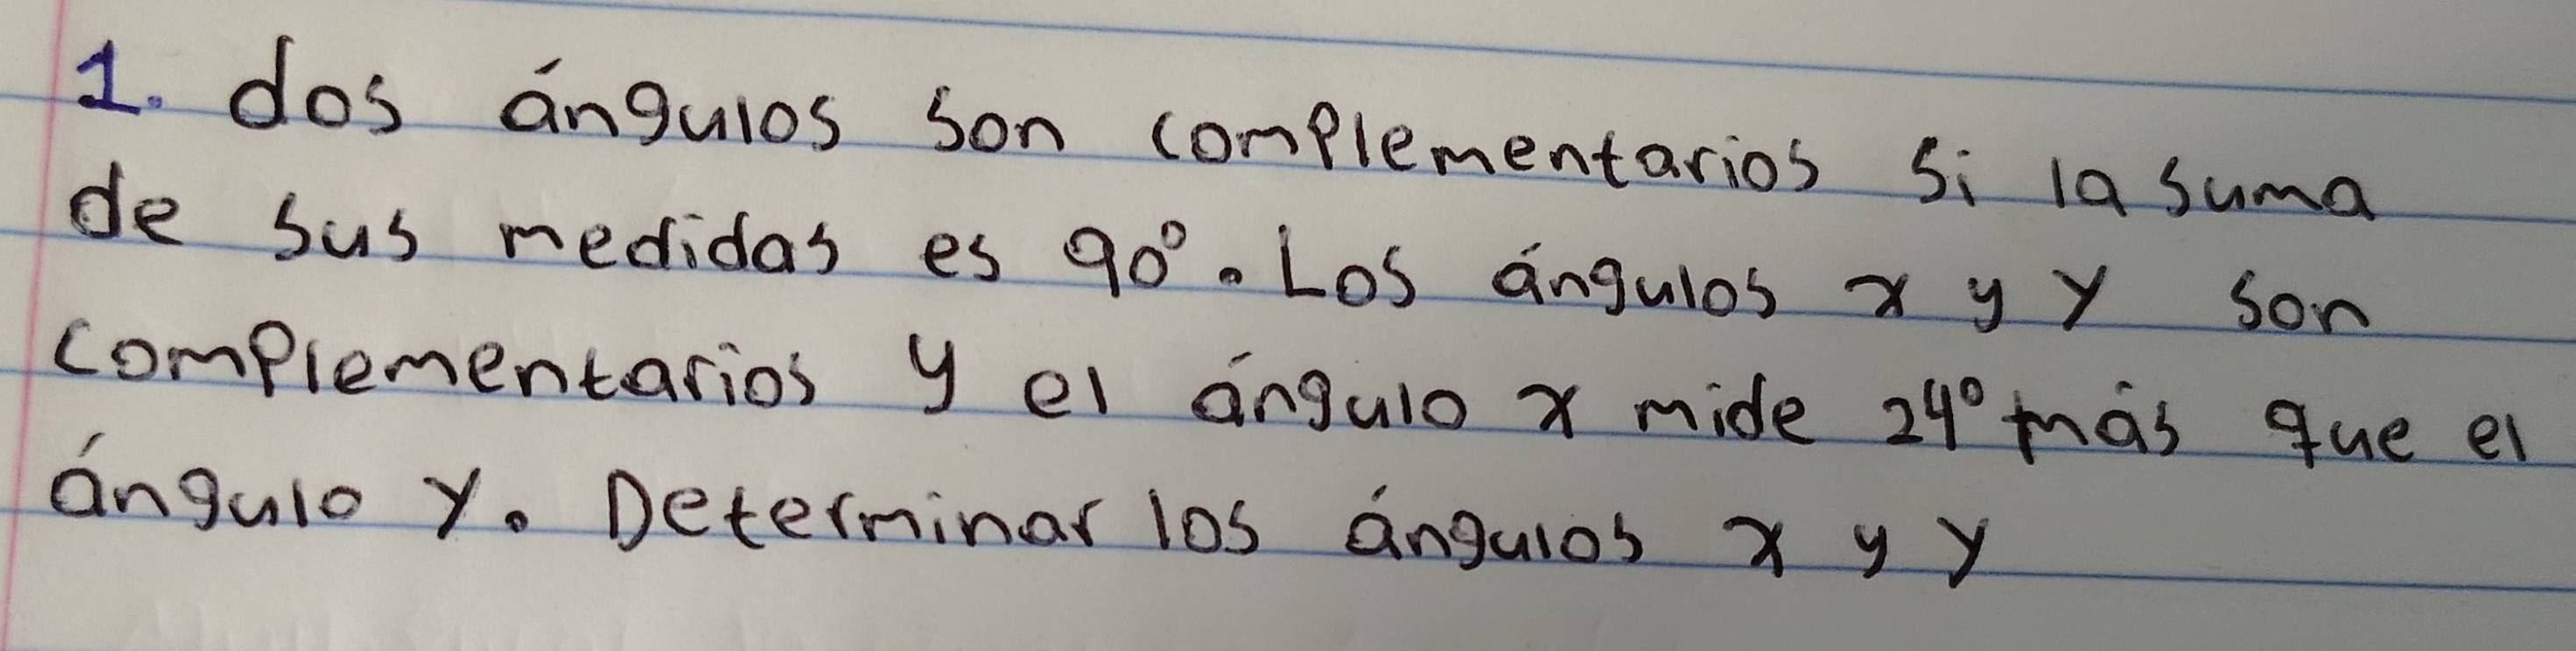 1. dos ángulos son complementarios si la suma
de sus medidas es 90°. Los ángulos x y y son
complementarios y el ángulo x mide 24° más que el
ángulo y. Determinar los ángulos x y y